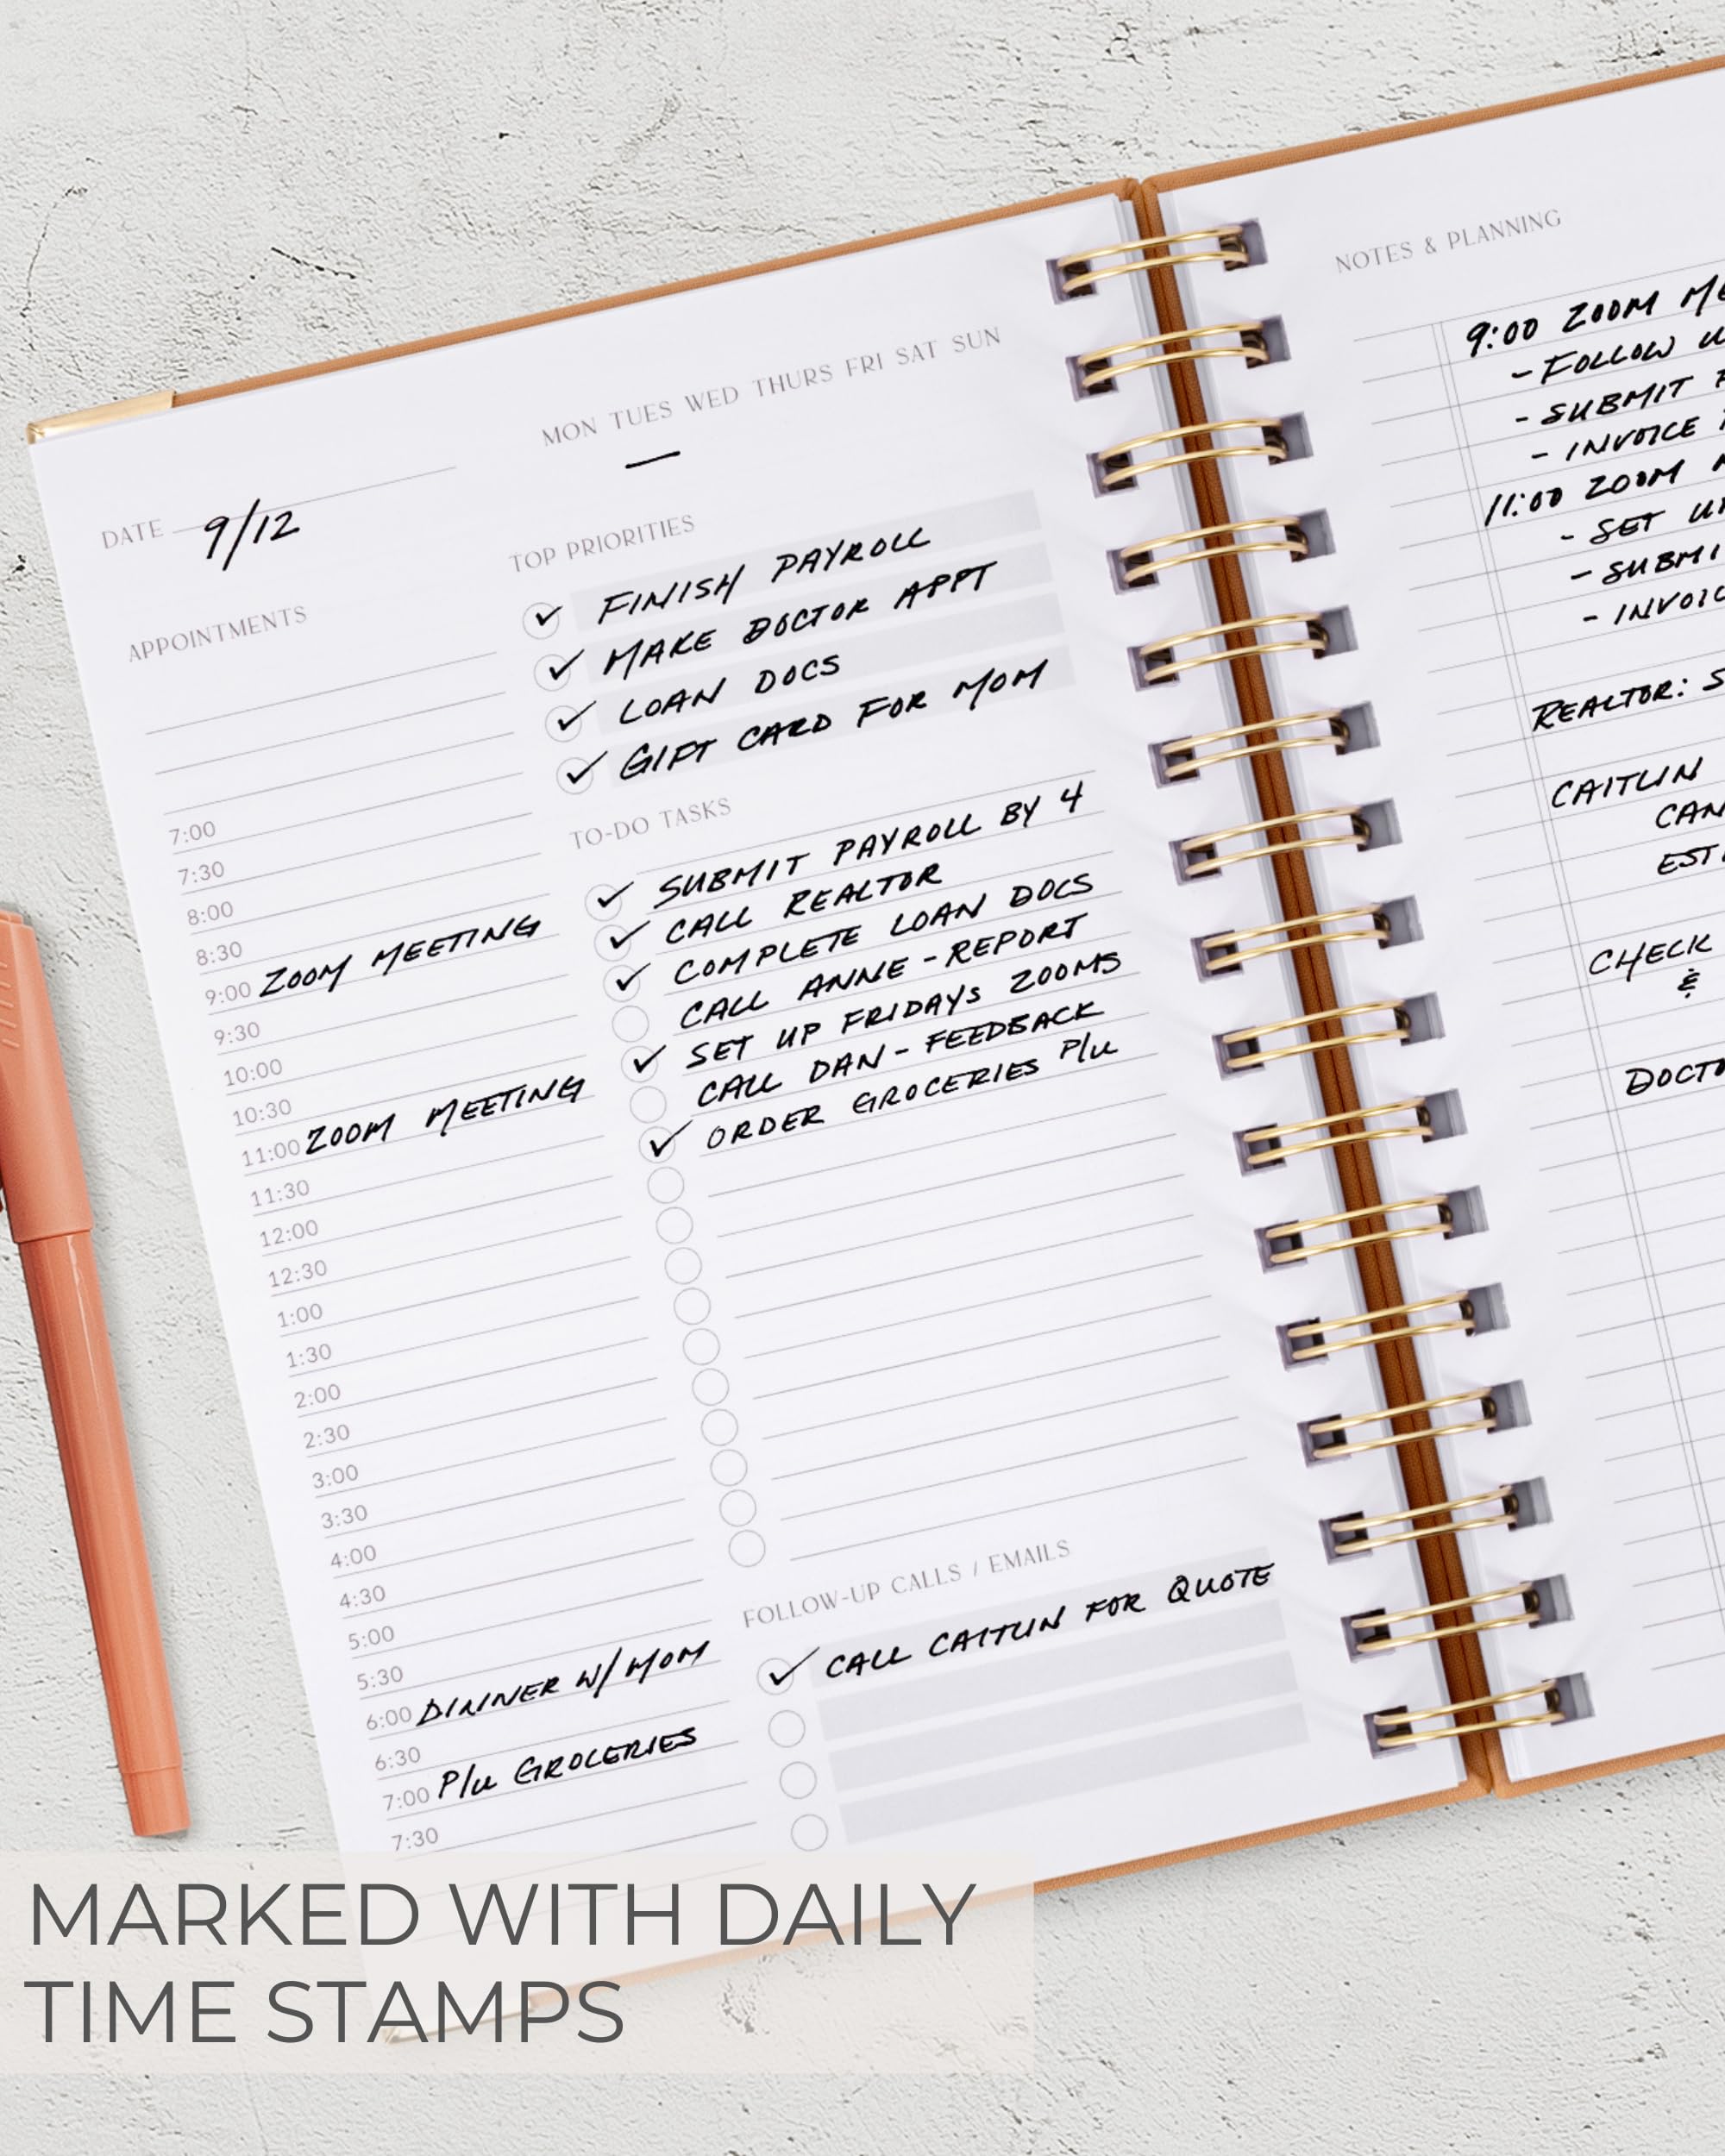 MON TUES WED THURS FRI SAT SUN
DATE 9/12
APPOINTMENTS
7:00
7:30
8:00
8:30
9:00 ZOOM MEETING
9:30
10:00
10:30
11:00 ZOOM MEETING
11:30
12:00
12:30
1:00
1:30
2:00
2:30
3:00
3:30
4:00
4:30
5:00
5:30
6:00 DINNER W/ MOM
6:30
7:00 P/U GROCERIES
7:30
TOP PRIORITIES
FINISH PAYROLL
MAKE DOCTOR APPT
LOAN DOCS
GIFT CARD FOR MOM
TO-DO TASKS
SUBMIT PAYROLL BY 4
CALL REALTOR
COMPLETE LOAN DOCS
CALL ANNE - REPORT
SET UP FRIDAYS ZOOMS
CALL DAN - FEEDBACK
ORDER GROCERIES P/U
FOLLOW-UP CALLS / EMAILS
CALL CAITLIN FOR QUOTE
NOTES & PLANNING
9:00 ZOOM
- FOLLOW
- SUBMIT
- INVOICE
11:00 ZOOM
- SET
-
-
REALTOR:
CAITLIN
CHECK
&
MARKED WITH DAILY
TIME STAMPS